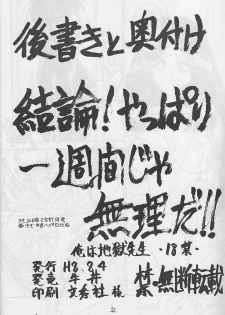 後書きと奥付け
結論！やっぱり
一週間じゃ
無理だ!!
俺は地獄先生 -18禁-
発行 H8.8.4
印刷 文秀社 様
禁・無断転載